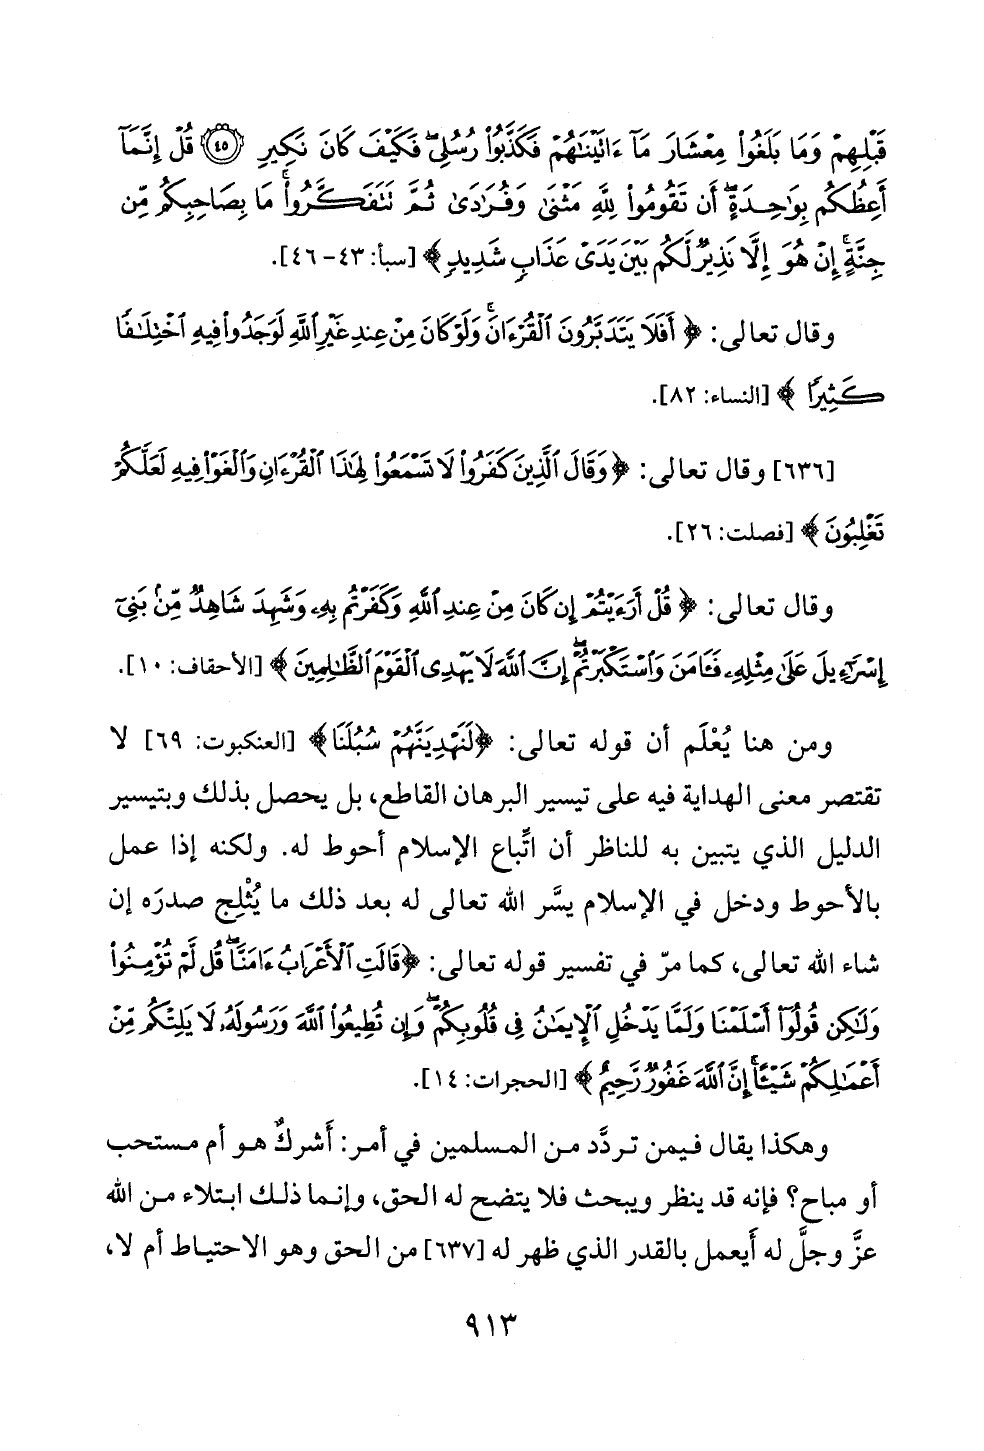 قَبْلِهِمْ وَمَا بَلَغُوا۟ مِعْشَارَ مَآ ءَاتَيْنَٰهُمْ فَكَذَّبُوا۟ رُسُلِىۖ فَكَيْفَ كَانَ نَكِيرِ ٤٥ قُلْ إِنَّمَآ
أَعِظُكُم بِوَٰحِدَةٍۖ أَن تَقُومُوا۟ لِلَّهِ مَثْنَىٰ وَفُرَٰدَىٰ ثُمَّ تَتَفَكَّرُوا۟ۚ مَا بِصَاحِبِكُم مِّن
جِنَّةٍۚ إِنْ هُوَ إِلَّا نَذِيرٌ لَّكُم بَيْنَ يَدَىْ عَذَابٍ شَدِيدٍ﴾ [سبأ: ٤٣-٤٦].
وقال تعالى: ﴿أَفَلَا يَتَدَبَّرُونَ ٱلْقُرْءَانَۚ وَلَوْ كَانَ مِنْ عِندِ غَيْرِ ٱللَّهِ لَوَجَدُوا۟ فِيهِ ٱخْتِلَٰفًا
كَثِيرًا﴾ [النساء: ٨٢].
[٦٣٦] وقال تعالى: ﴿وَقَالَ ٱلَّذِينَ كَفَرُوا۟ لَا تَسْمَعُوا۟ لِهَٰذَا ٱلْقُرْءَانِ وَٱلْغَوْا۟ فِيهِ لَعَلَّكُمْ
تَغْلِبُونَ﴾ [فصلت: ٢٦].
وقال تعالى: ﴿قُلْ أَرَءَيْتُمْ إِن كَانَ مِنْ عِندِ ٱللَّهِ وَكَفَرْتُم بِهِۦ وَشَهِدَ شَاهِدٌ مِّنۢ بَنِىٓ
إِسْرَٰٓءِيلَ عَلَىٰ مِثْلِهِۦ فَـَٔامَنَ وَٱسْتَكْبَرْتُمْۖ إِنَّ ٱللَّهَ لَا يَهْدِى ٱلْقَوْمَ ٱلظَّٰلِمِينَ﴾ [الأحقاف: ١٠].
ومن هنا يُعْلَم أن قوله تعالى: ﴿لَنَهْدِيَنَّهُمْ سُبُلَنَا﴾ [العنكبوت: ٦٩] لا
تقتصر معنى الهداية فيه على تيسير البرهان القاطع، بل يحصل بذلك وبتيسير
الدليل الذي يتبين به للناظر أن اتِّباع الإسلام أحوط له. ولكنه إذا عمل
بالأحوط ودخل في الإسلام يسَّر الله تعالى له بعد ذلك ما يُثْلِج صدرَه إن
شاء الله تعالى، كما مرّ في تفسير قوله تعالى: ﴿قَالَتِ ٱلْأَعْرَابُ ءَامَنَّاۖ قُل لَّمْ تُؤْمِنُوا۟
وَلَٰكِن قُولُوٓا۟ أَسْلَمْنَا وَلَمَّا يَدْخُلِ ٱلْإِيمَٰنُ فِى قُلُوبِكُمْۖ وَإِن تُطِيعُوا۟ ٱللَّهَ وَرَسُولَهُۥ لَا يَلِتْكُم مِّنْ
أَعْمَٰلِكُمْ شَيْـًٔاۚ إِنَّ ٱللَّهَ غَفُورٌ رَّحِيمٌ﴾ [الحجرات: ١٤].
وهكذا يقال فيمن تردَّد من المسلمين في أمر: أَشركٌ هو أم مستحب
أو مباح؟ فإنه قد ينظر ويبحث فلا يتضح له الحق، وإنما ذلك ابتلاء من الله
عزَّ وجلَّ له أَيعمل بالقدر الذي ظهر له [٦٣٧] من الحق وهو الاحتياط أم لا،
٩١٣